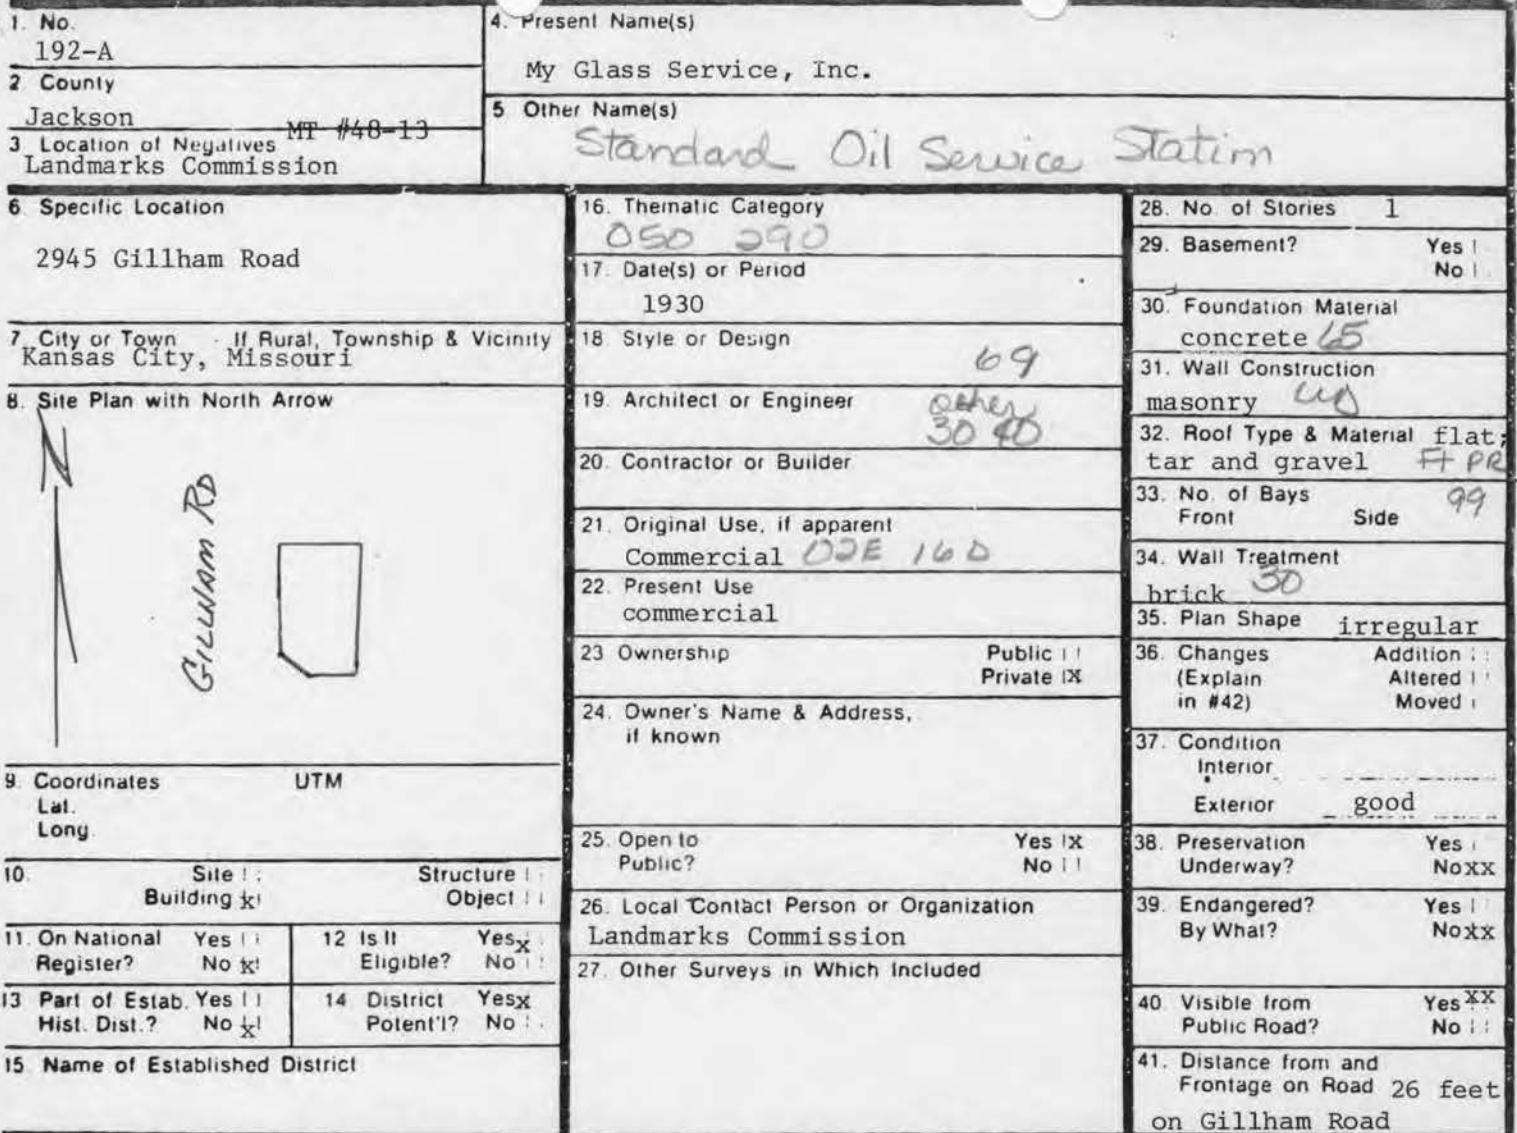 1. No.
192-A
2 County
Jackson
MT #48-13
3 Location of Negatives
Landmarks Commission
4. Present Name(s)
My Glass Service, Inc.
5 Other Name(s)
Standard Oil Service Station
6 Specific Location
2945 Gillham Road
7 City or Town If Rural, Township & Vicinity
Kansas City, Missouri
8. Site Plan with North Arrow
N
GILLHAM RD
9. Coordinates UTM
Lat.
Long.
10. Site Structure
Building x Object
11. On National Yes
Register? No x
12 Is It Yes x
Eligible? No
13 Part of Estab. Yes
Hist. Dist.? No x
14. District Yes x
Potent'l? No
15 Name of Established District
16. Thematic Category
050 290
17. Date(s) or Period
1930
18 Style or Design
69
19. Architect or Engineer
other
30 40
20. Contractor or Builder
21. Original Use, if apparent
Commercial 02E 16D
22. Present Use
commercial
23 Ownership Public
Private X
24. Owner's Name & Address,
if known
25. Open to Yes X
Public? No
26. Local Contact Person or Organization
Landmarks Commission
27. Other Surveys in Which Included
28. No. of Stories 1
29. Basement? Yes
No
30. Foundation Material
concrete 65
31. Wall Construction
masonry
32. Roof Type & Material flat;
tar and gravel Ft PR
33. No. of Bays 99
Front Side
34. Wall Treatment
brick 30
35. Plan Shape irregular
36. Changes Addition
(Explain Altered
in #42) Moved
37. Condition
Interior
Exterior good
38. Preservation Yes
Underway? No xx
39. Endangered? Yes
By What? No xx
40. Visible from Yes xx
Public Road? No
41. Distance from and
Frontage on Road 26 feet
on Gillham Road